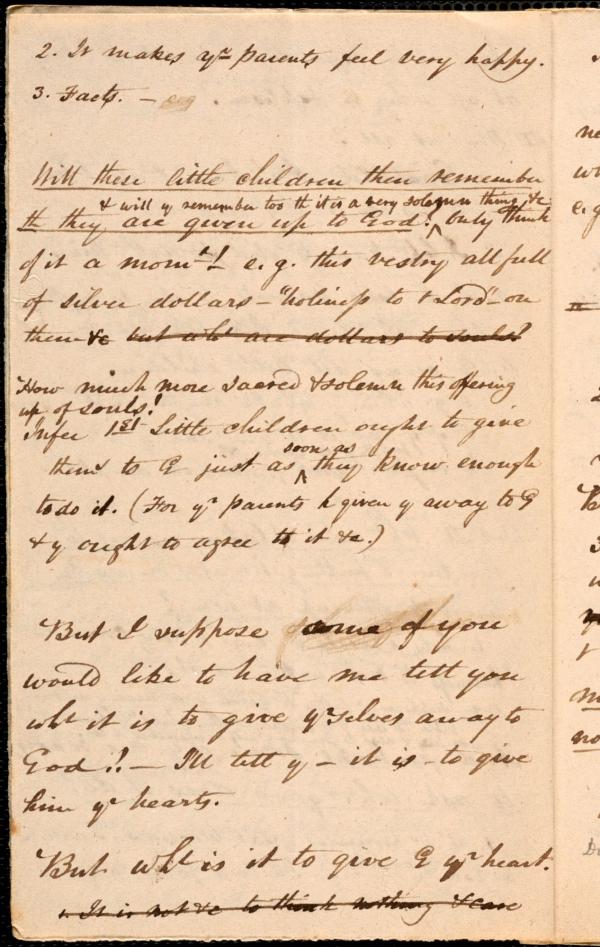 2. It makes yr parents feel very happy.
3. Facts. – e.g
Will these little children then remember
& will y remember too th it is a very solemn thing, &c
th they are given up to God! ^ Only think
of it a momt! e.g. this vestry all full
of silver dollars – "holiness to t Lord" on
them &c but wht are dollars to souls?
How much more sacred & solemn this offering
up of souls!
Infer 1st Little children ought to give
soon as
thems to G just as ^ they know enough
to do it. (For yr parents h given y away to G
& y ought to agree to it &c.)
But I suppose some of you
would like to have me tell you
wht it is to give yrselves away to
God?! – I'll tell y – it is – to give
him yr hearts.
But wht is it to give G yr heart.
1. It is not &c to think nothing & care
ne
e.g
no